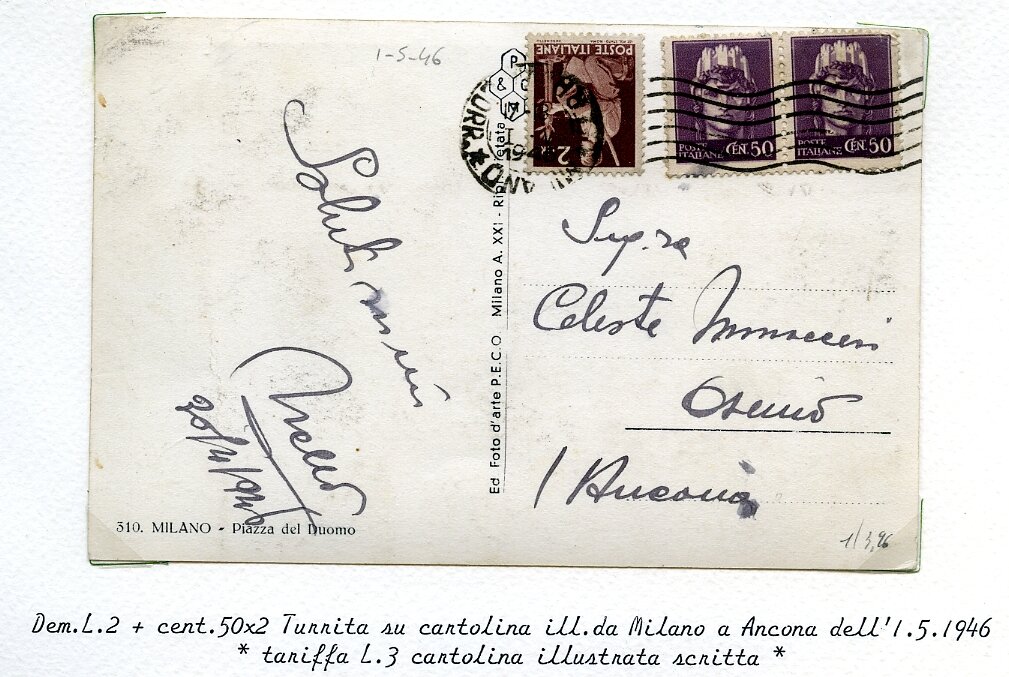 1-5-46
POSTE ITALIANE
2
POSTE ITALIANE CEN. 50
POSTE ITALIANE CEN. 50
P
C
&
M
MILANO
CORR.
Saluti
20/4/946
310. MILANO - Piazza del Duomo
Ed Foto d'arte P.E.C.O Milano A. XXI - Rip
etata
Sig.ra
Celeste
Osimo
(Ancona)
Dem.L.2 + cent.50x2 Turrita su cartolina ill.da Milano a Ancona dell'1.5.1946
* tariffa L.3 cartolina illustrata scritta *